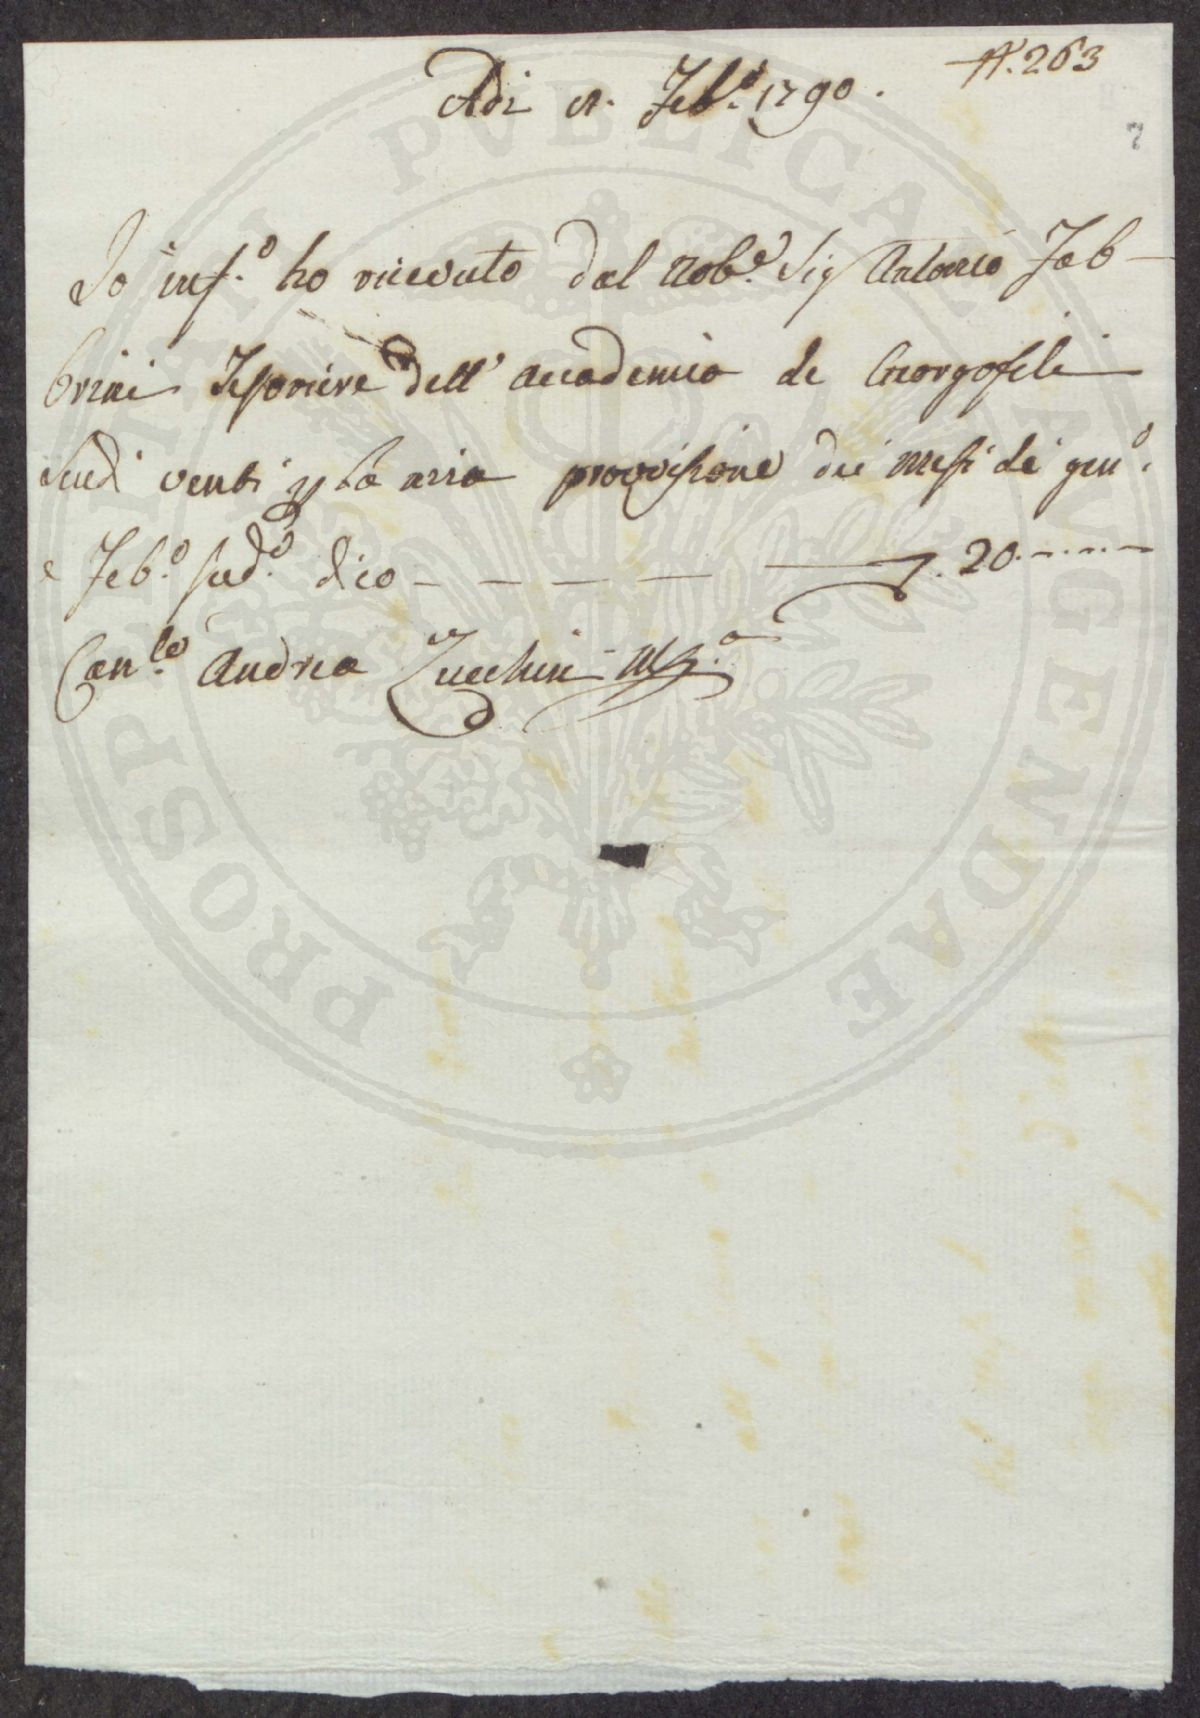 N. 263
Adi Feb.o 1790.
Io inf.o ho ricevuto dal Nob.e Sig Antonio Fab-
brini Tesoriere dell' Accademia de Georgofili
Scudi venti p la mia provvisione dei mesi di gen.o
e Feb.o sud.o dico - - - - 20
Can.co Andrea Zucchini
PROSPERITATI PUBLICAE AUGENDAE